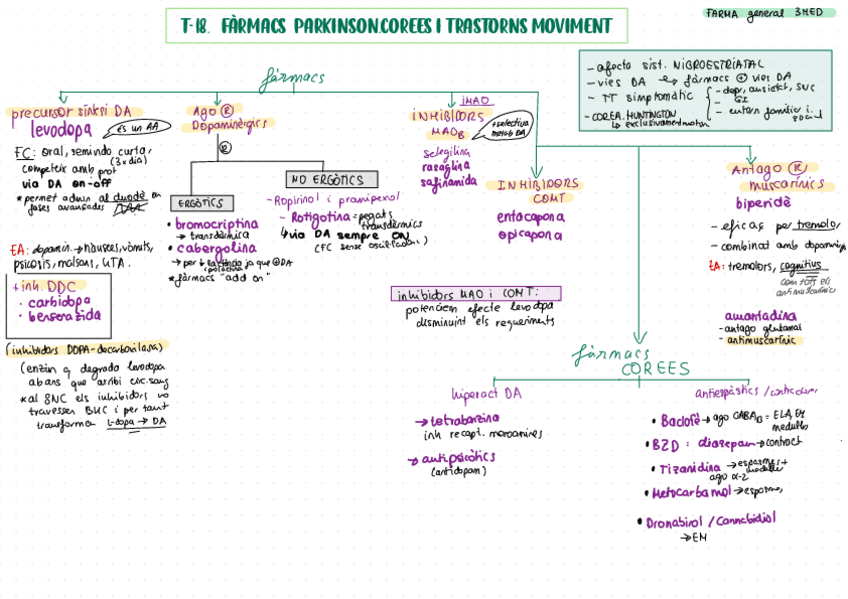 FARMA general 3MED
T-18. FÀRMACS PARKINSON.COREES I TRASTORNS MOVIMENT
- afecta sist. NIGROESTRIATAL
- vies DA → fàrmacs ⊕ vies DA
- TT simptomàtic
- depr, ansietat, SNC
- GI
- entorn familiar i social
- COREA HUNTINGTON
↳ exclusivament motor
fàrmacs
precursor síntesi DA
levodopa
és un AA
FC: oral, semivida curta,
(3x dia)
competeix amb prot
via DA on-off
* permet admin al duodè en
fases avançades
EA: dopamin. → nàusees, vòmits,
psicosis, malsons, UTA.
+ inh. DDC
· carbidopa
· benserazida
(inhibidors DOPA-decarboxilasa)
(enzim q degrada levodopa
abans que arribi circ. sang
* al SNC els inhibidors no
travessen BHC i per tant
transforma l-dopa → DA
Ago Ⓡ
Dopaminèrgics
Ⓡ
ERGÒTICS
• bromocriptina
→ transdèrmica
• cabergolina
→ per ↓ lactància ja que ⊕DA
* fàrmacs "add on"
NO ERGÒTICS
- Ropinirol i pramipexol
- Rotigotina = pegats
transdèrmics
↳ via DA sempre ON
(FC sense oscil·lacions)
IMAO
INHIBIDORS
MAO B
+ selectiva
metab DA
selegilina
rasagilina
safinamida
INHIBIDORS
COMT
entacapona
opicapona
inhibidors MAO i COMT:
potencien efecte levodopa
disminuint els requeriments
Antago Ⓡ
muscarínics
biperidè
- eficaç per tremolor
- combinat amb dopaminèrgics
EA: tremolors, cognitius
com tots els
antimuscarínics
amantadina
- antago glutamat
- antimuscarínic
fàrmacs
COREES
hiperact DA
→ tetrabenzina
inh recapt. monoamines
→ antipsicòtics
(antidopam)
antiespàstics /
• Baclofè → ago GABA B = ELA, EM
• BZD : diazepam → contract
• Tizanidina → espasmes
ago α-2
• Metocarbamol → espasmes
• Dronabinol / Cannabidiol
→ EM